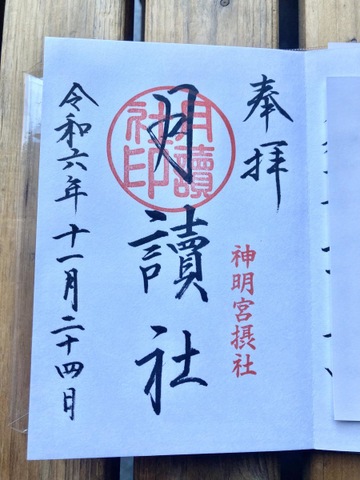 奉拝
神明宮摂社
月讀社
月讀社印
令和六年十一月二十四日